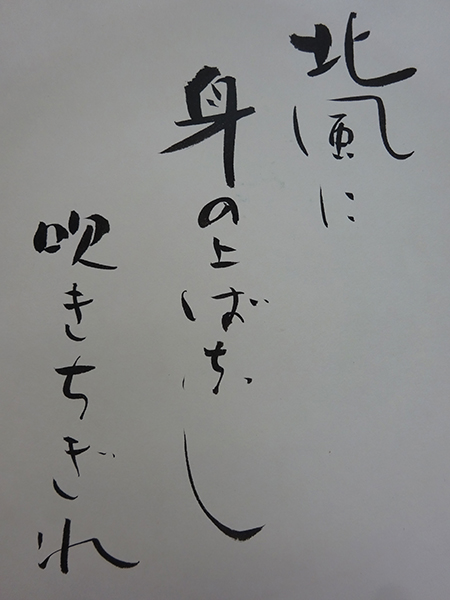 北風に
身の上ばなし
吹きちぎれ